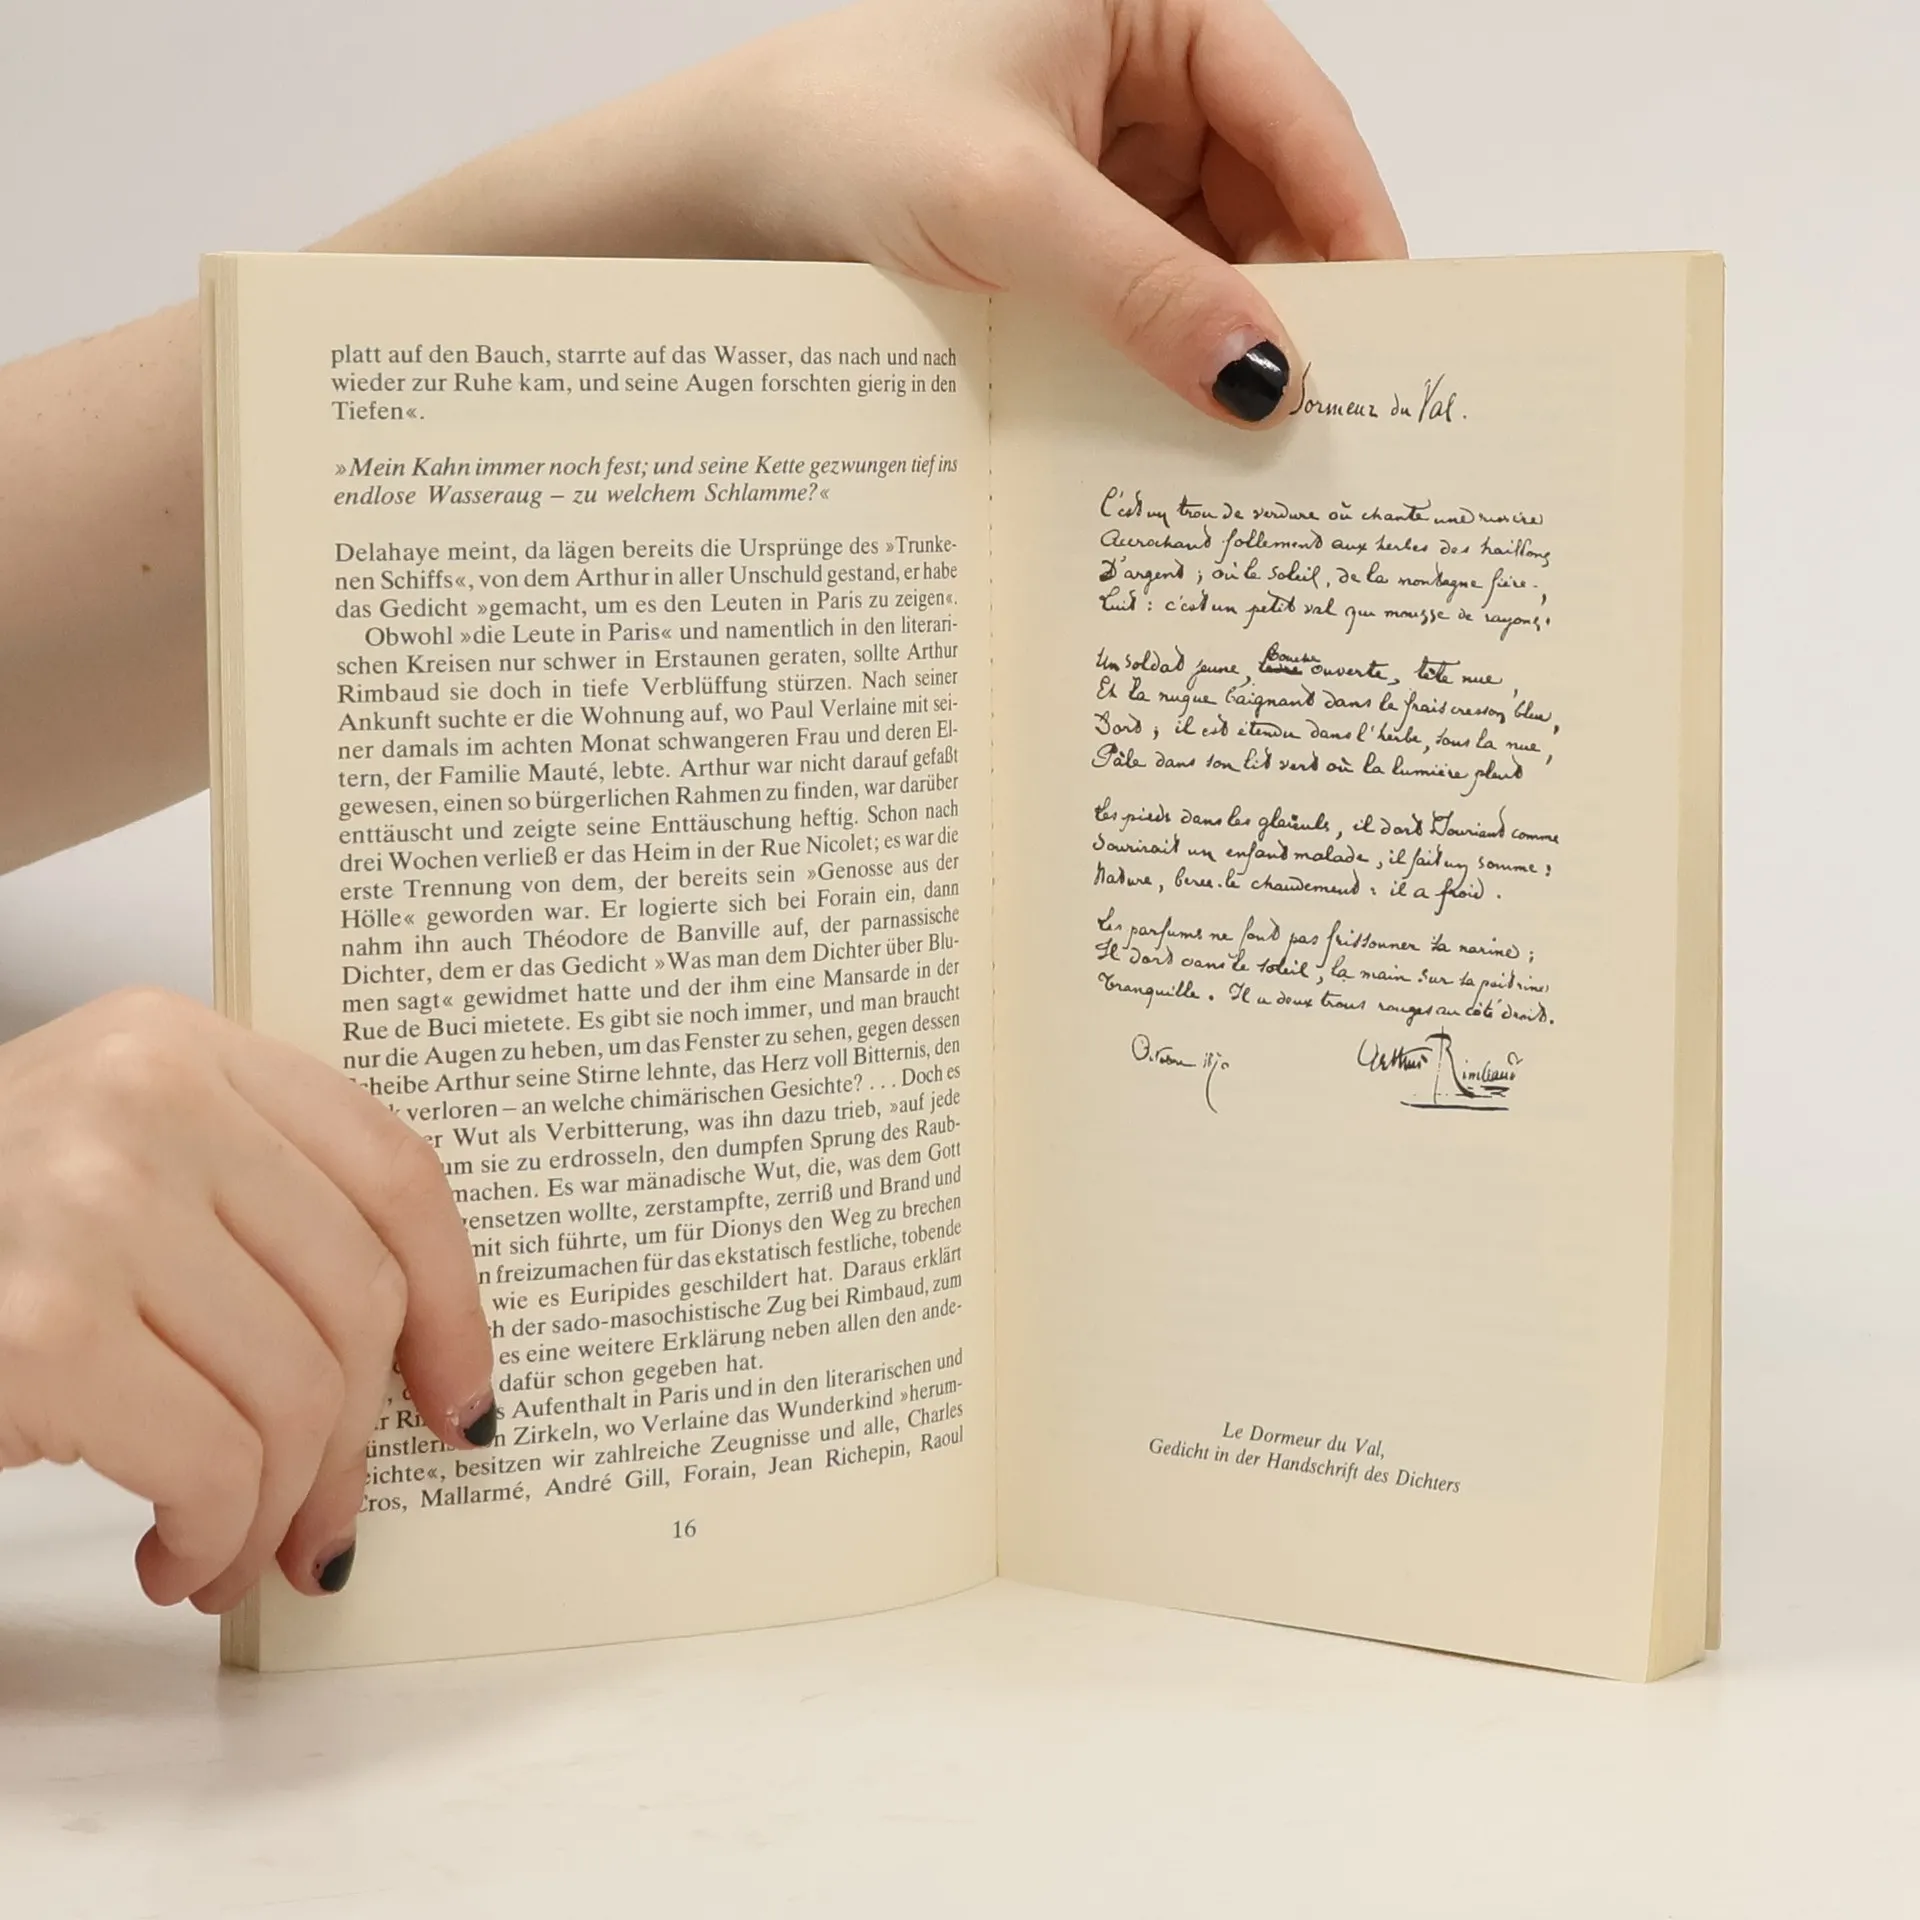 platt auf den Bauch, starrte auf das Wasser, das nach und nach
wieder zur Ruhe kam, und seine Augen forschten gierig in den
Tiefen«.
»Mein Kahn immer noch fest; und seine Kette gezwungen tief ins
endlose Wasseraug – zu welchem Schlamme?«
Delahaye meint, da lägen bereits die Ursprünge des »Trunke-
nen Schiffs«, von dem Arthur in aller Unschuld gestand, er habe
das Gedicht »gemacht, um es den Leuten in Paris zu zeigen«.
Obwohl »die Leute in Paris« und namentlich in den literari-
schen Kreisen nur schwer in Erstaunen geraten, sollte Arthur
Rimbaud sie doch in tiefe Verblüffung stürzen. Nach seiner
Ankunft suchte er die Wohnung auf, wo Paul Verlaine mit sei-
ner damals im achten Monat schwangeren Frau und deren El-
tern, der Familie Mauté, lebte. Arthur war nicht darauf gefaßt
gewesen, einen so bürgerlichen Rahmen zu finden, war darüber
enttäuscht und zeigte seine Enttäuschung heftig. Schon nach
drei Wochen verließ er das Heim in der Rue Nicolet; es war die
erste Trennung von dem, der bereits sein »Genosse aus der
Hölle« geworden war. Er logierte sich bei Forain ein, dann
nahm ihn auch Théodore de Banville auf, der parnassische
Dichter, dem er das Gedicht »Was man dem Dichter über Blu-
men sagt« gewidmet hatte und der ihm eine Mansarde in der
Rue de Buci mietete. Es gibt sie noch immer, und man braucht
nur die Augen zu heben, um das Fenster zu sehen, gegen dessen
cheibe Arthur seine Stirne lehnte, das Herz voll Bitternis, den
verloren – an welche chimärischen Gesichte? . . . Doch es
er Wut als Verbitterung, was ihn dazu trieb, »auf jede
um sie zu erdrosseln, den dumpfen Sprung des Raub-
machen. Es war mänadische Wut, die, was dem Gott
gensetzen wollte, zerstampfte, zerriß und Brand und
mit sich führte, um für Dionys den Weg zu brechen
n freizumachen für das ekstatisch festliche, tobende
wie es Euripides geschildert hat. Daraus erklärt
h der sado-masochistische Zug bei Rimbaud, zum
es eine weitere Erklärung neben allen den ande-
dafür schon gegeben hat.
s Aufenthalt in Paris und in den literarischen und
ünstleri n Zirkeln, wo Verlaine das Wunderkind »herum-
eichte«, besitzen wir zahlreiche Zeugnisse und alle, Charles
Cros, Mallarmé, André Gill, Forain, Jean Richepin, Raoul
16
Dormeur du Val.
C'est un trou de verdure où chante une rivière
Accrochant follement aux herbes des haillons
D'argent ; où le soleil, de la montagne fière,
Luit : c'est un petit val qui mousse de rayons.
Un soldat jeune, bouche ouverte, tête nue,
Et la nuque baignant dans le frais cresson bleu,
Dort ; il est étendu dans l'herbe, sous la nue,
Pâle dans son lit vert où la lumière pleut
Les pieds dans les glaïeuls, il dort. Souriant comme
Sourirait un enfant malade, il fait un somme :
Nature, berce-le chaudement : il a froid.
Les parfums ne font pas frissonner sa narine ;
Il dort dans le soleil, la main sur sa poitrine
Tranquille. Il a deux trous rouges au côté droit.
Octobre 1870
Arthur Rimbaud
Le Dormeur du Val,
Gedicht in der Handschrift des Dichters